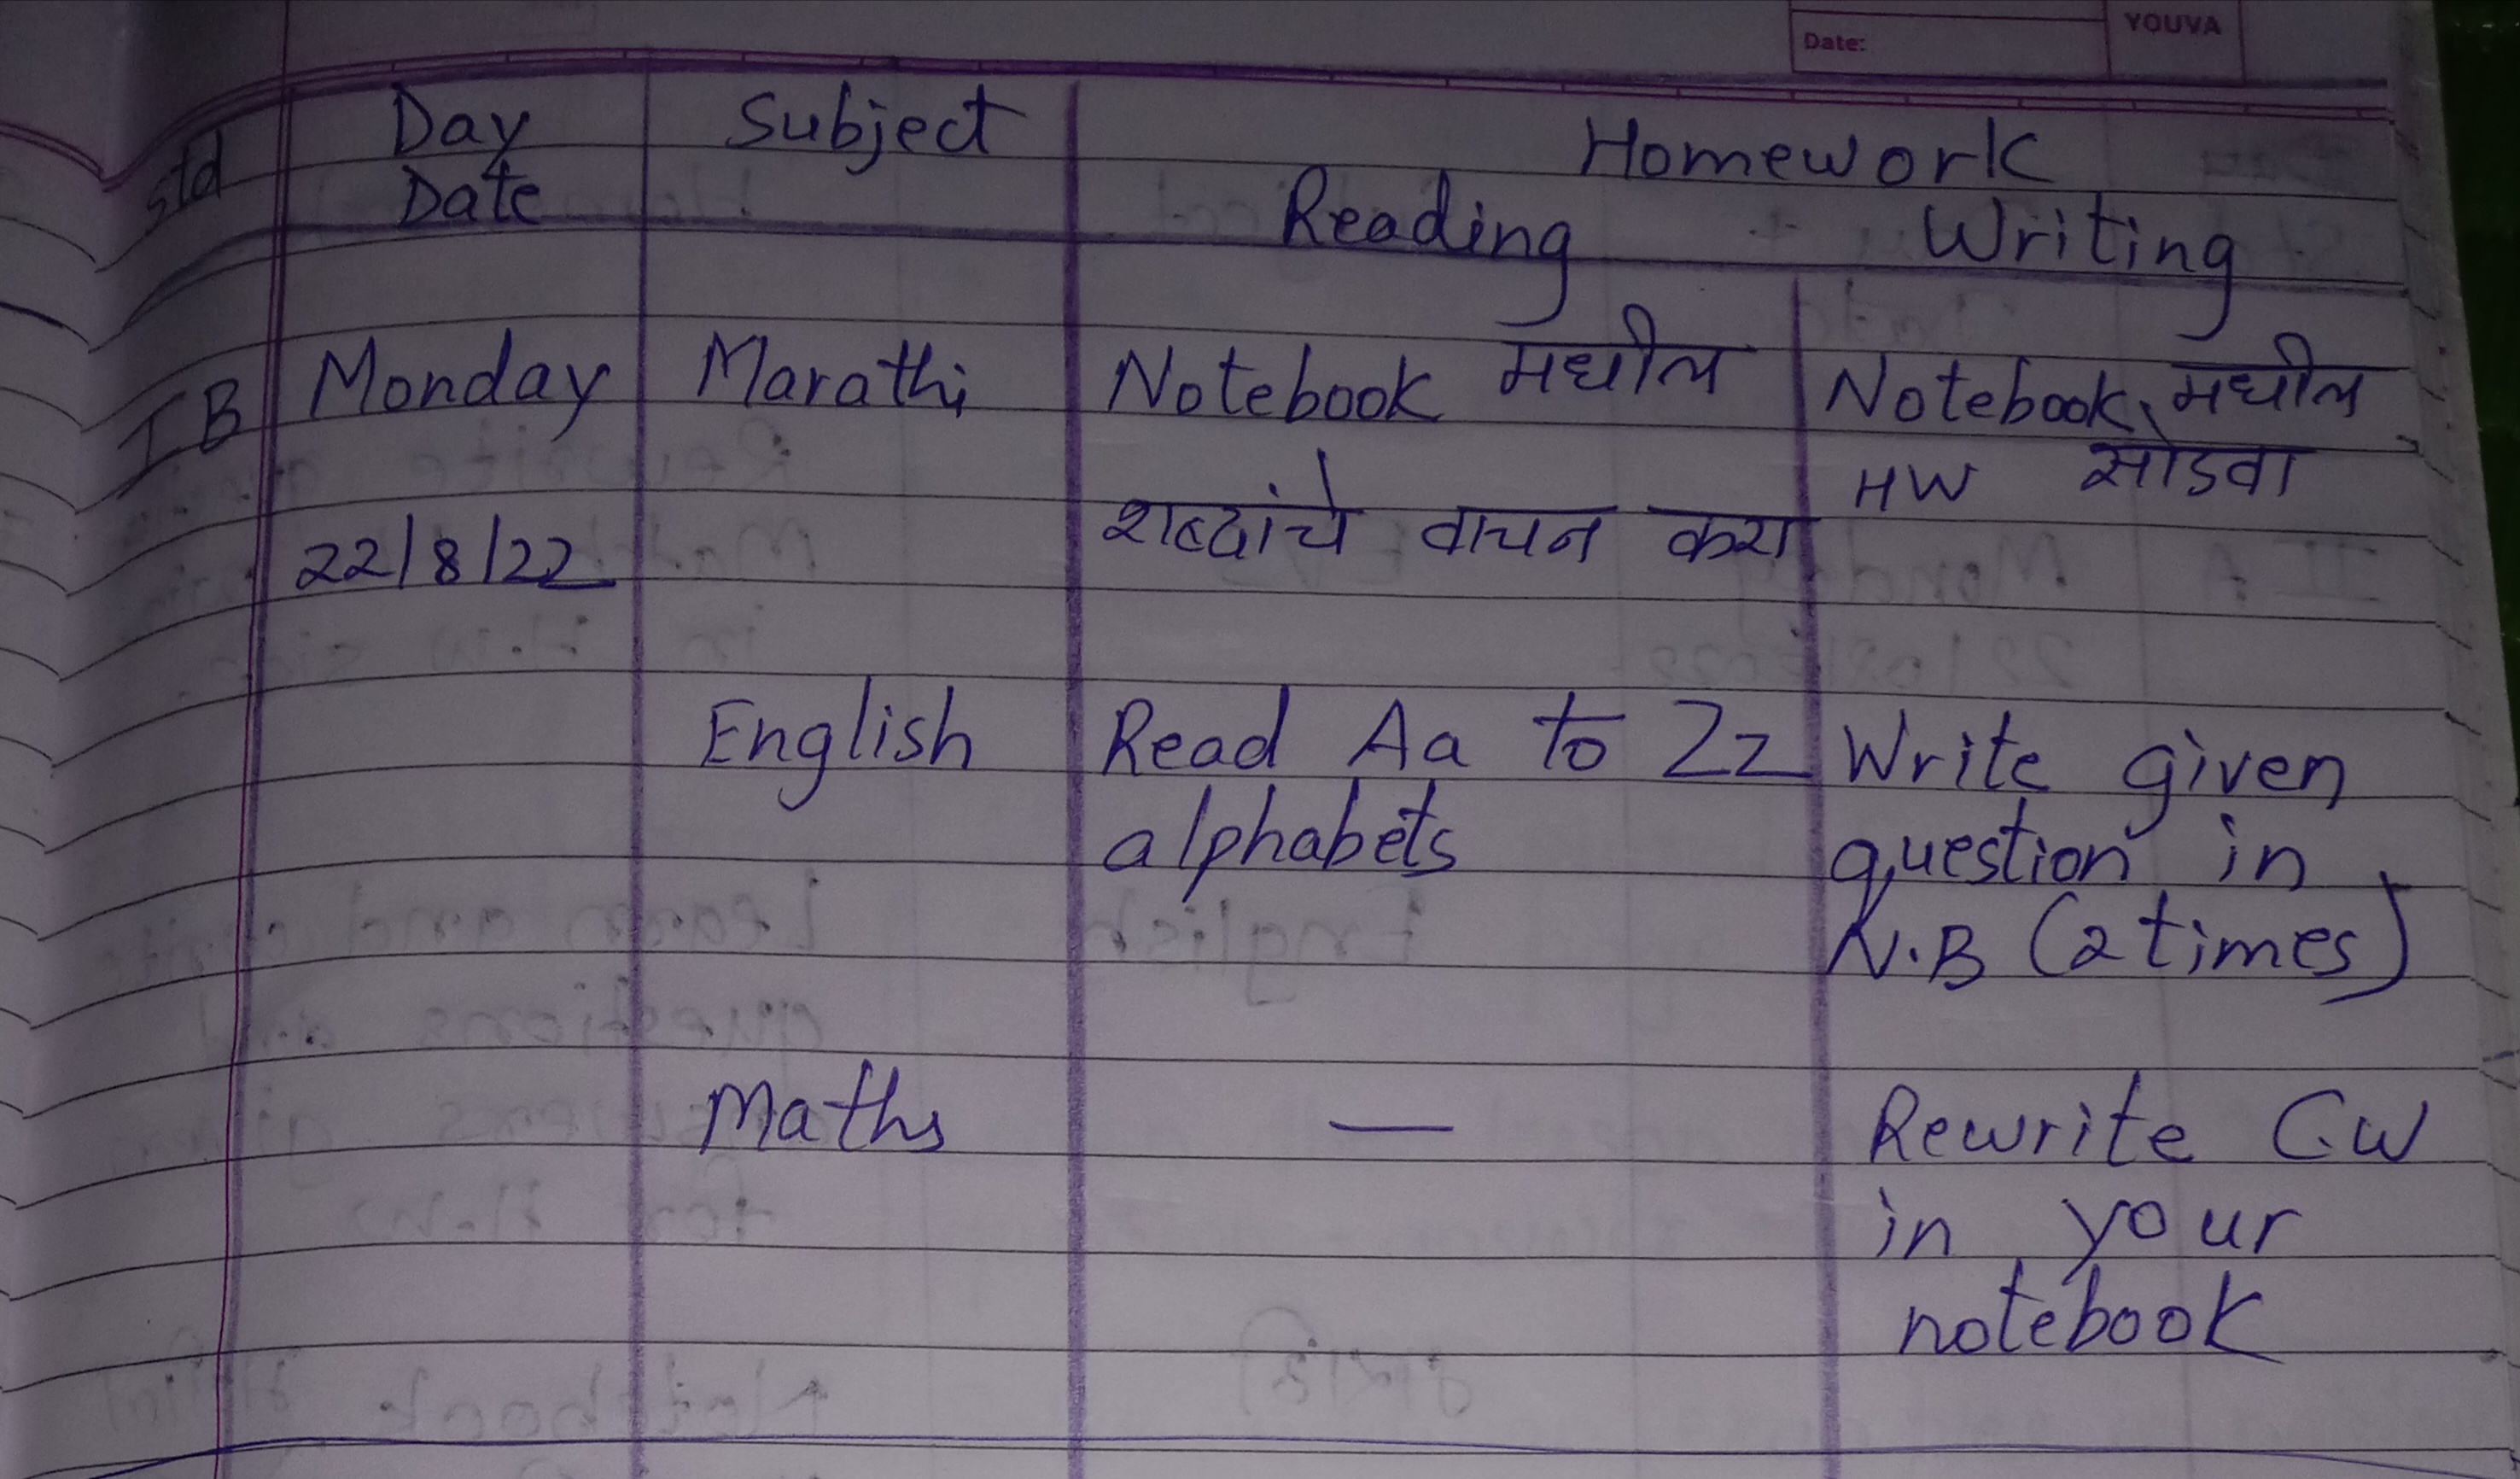 YOUVA
Date:
Std Day Subject Homework
Date Reading Writing
I B Monday Marathi Notebook मधील Notebook मधील
HW सोडवा
22/8/22 शब्दांचे वाचन करा
English Read Aa to Zz Write given
alphabets question in
N.B (2 times)
Maths — Rewrite C.W
in your
notebook